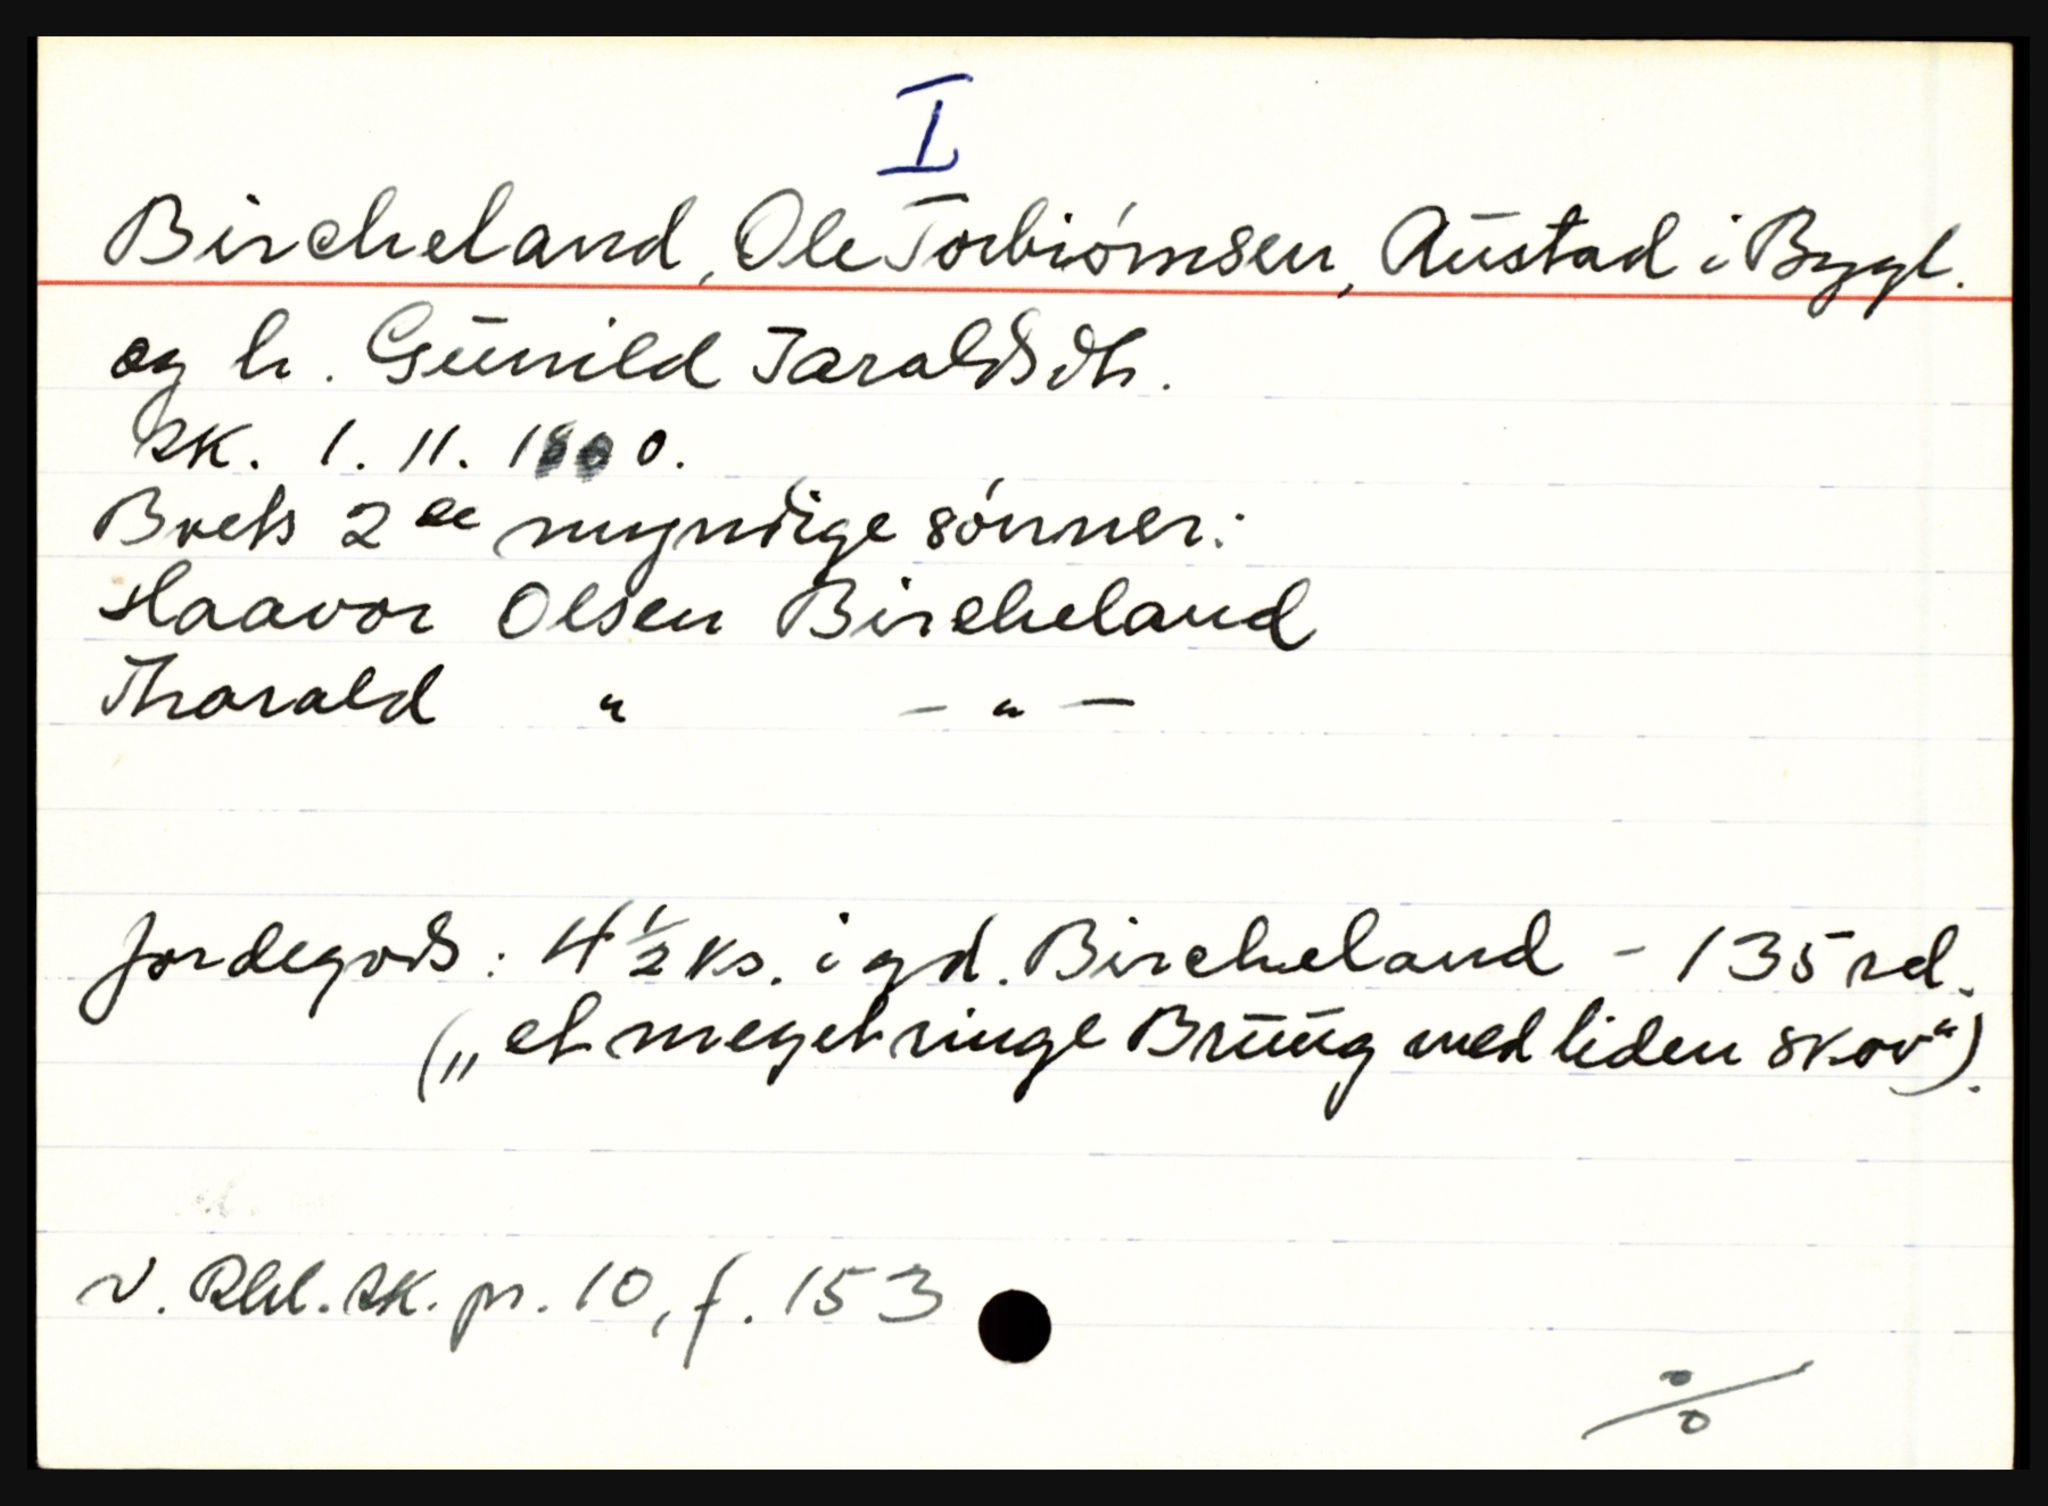 I
Bircheland, Ole Torbiørnsen, Austad i Bygl.
og h. Gunild Taraldsdtr.
sk. 1. 11. 1800.
Brets 2de myndige sønner:
Haavor Olsen Bircheland
Tharald " - " -
Jordegods: 4 1/2 ks. i gd. Bircheland - 135 rd.
(„et meget ringe Bruug med liden skov").
v. Rbl. sk. pr. 10, f. 153
%